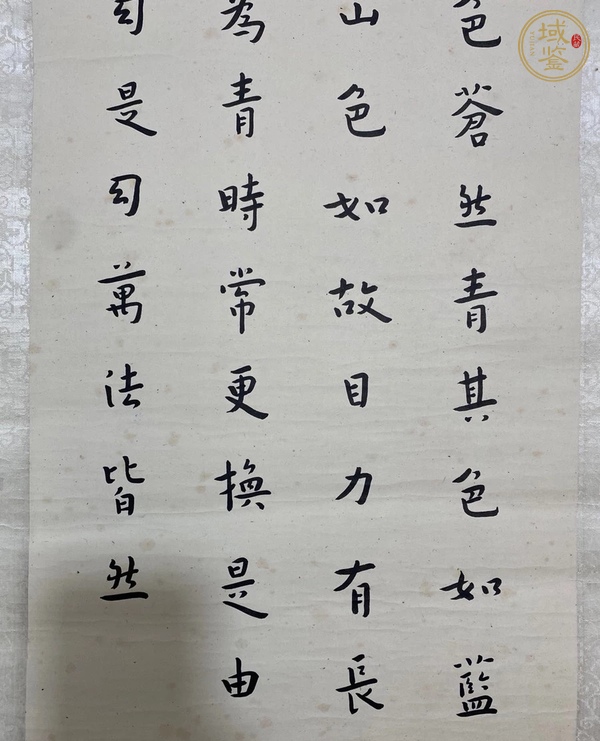 色蒼然青其色如藍
山色如故目力有長
為青時常更換是由
幻是幻萬法皆然
域鑒